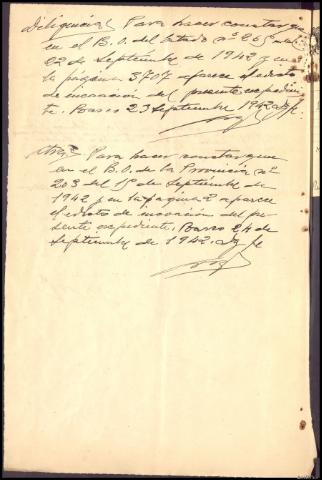 Diligencia/ Para hacer constar que
en el B.O. del Estado nº 265 del
22 de Septiembre de 1942 y en
la página 3707 aparece el edicto
de incoación del presente expedien
te. Baseo 23 Septiembre 1942 doy fe.
Otra/ Para hacer constar que
en el B.O. de la Provincia nº
203 del 15 de Septiembre de
1942 y en la página 2 aparece
el edicto de incoación del pre
sente expediente. Baseo 24 de
Septiembre de 1942. doy fe